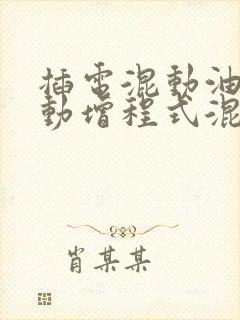 插电混動油
動增程式混
肖某某